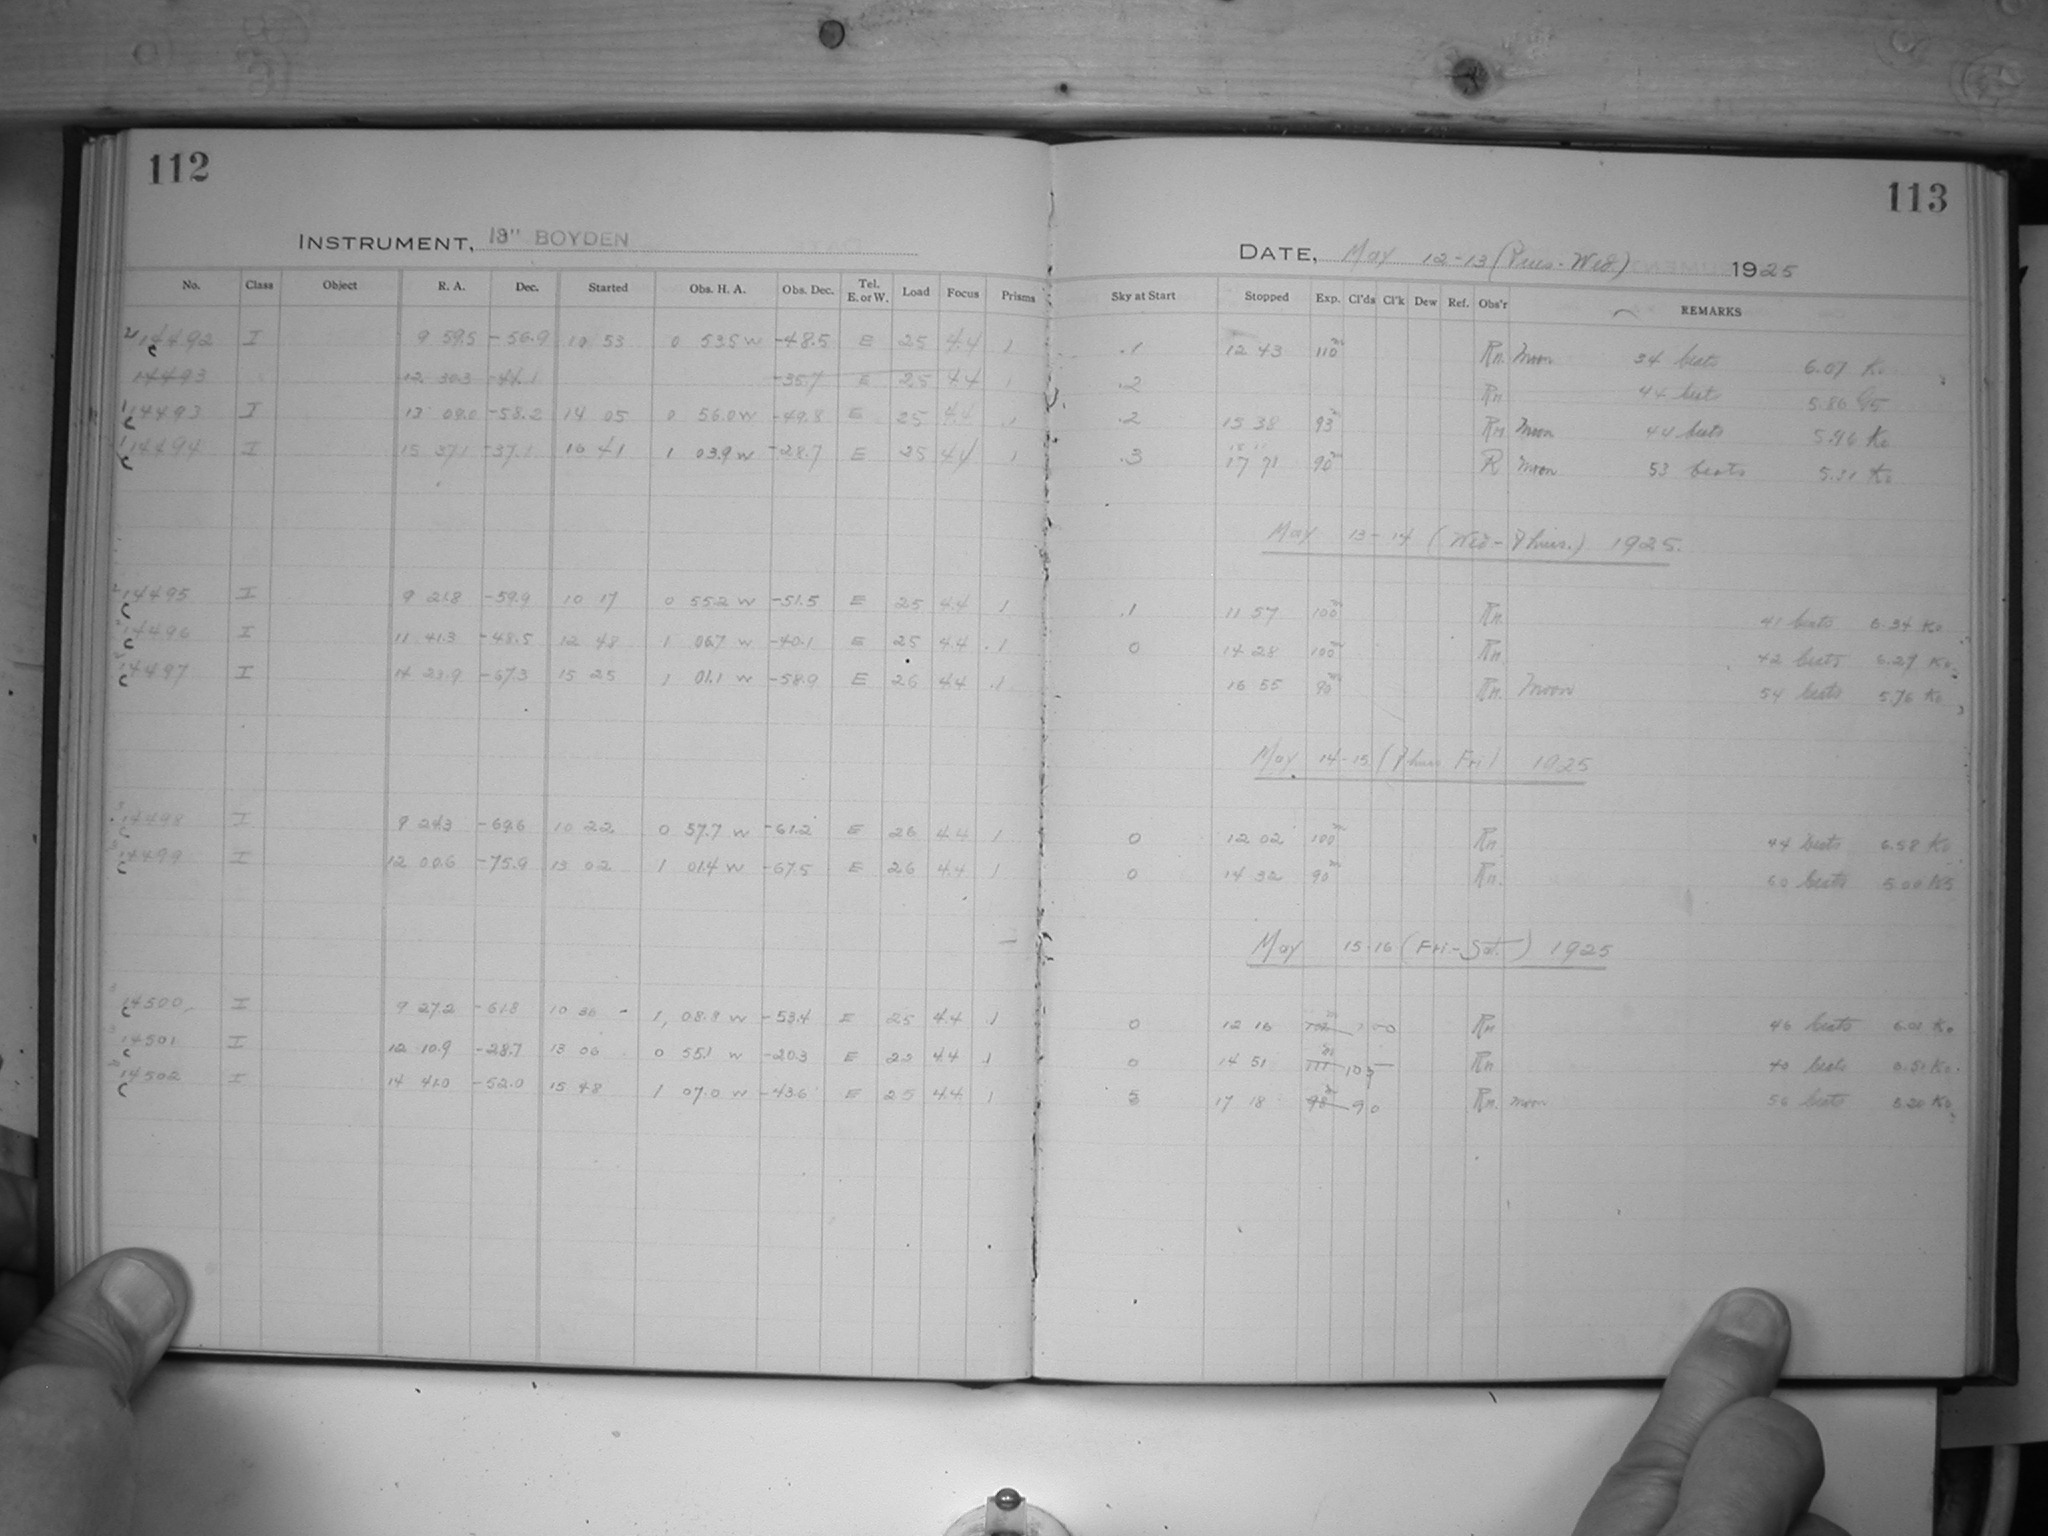 112
INSTRUMENT, 13" BOYDEN
No. Class Object R. A. Dec. Started Obs. H. A. Obs. Dec. Tel. E. or W. Load Focus Prisms
14492 I 9 59.5 -56.9 10 53 0 53.5 W -48.5 E 25 4.4 1
14493 12 30.3 -44.1 -35.7 E 25 4.4 1
14493 I 13 09.0 -58.2 14 05 0 56.0 W -49.8 E 25 4.4 1
14494 I 15 37.1 -37.1 16 41 1 03.9 W -28.7 E 25 4.4 1
14495 I 9 21.8 -59.9 10 17 0 55.2 W -51.5 E 25 4.4 1
14496 I 11 41.3 -48.5 12 48 1 06.7 W -40.1 E 25 4.4 1
14497 I 14 23.9 -67.3 15 25 1 01.1 W -58.9 E 26 4.4 1
14498 I 9 24.3 -69.6 10 22 0 57.7 W -61.2 E 26 4.4 1
14499 I 12 00.6 -75.9 13 02 1 01.4 W -67.5 E 26 4.4 1
14500 I 9 27.2 -61.8 10 36 1 08.8 W -53.4 E 25 4.4 1
14501 I 12 10.9 -28.7 13 06 0 55.1 W -20.3 E 4.4 1
14502 I 14 41.0 -52.0 15 48 1 07.0 W -43.6 E 25 4.4 1
113
DATE, May 12-13 (Tues-Wed) 1925
Sky at Start Stopped Exp. Cl'ds Cl'k Dew Ref. Obs'r REMARKS
.1 12 43 110m Rn. Moon 34 beats 6.07 Ko
.2 Rn 44 beats 5.86
.2 15 38 93m Rn Moon 44 beats 5.96 Ko
.3 17 90m R Moon 53 beats 5.31 Ko
May 13-14 (Wed-Thurs.) 1925.
.1 11 57 100m Rn. 41 beats 6.34 Ko
0 14 28 100m Rn 42 beats 6.29 Ko
16 55 90m Rn. Moon 54 beats 5.76 Ko
May 14-15 (Thurs Fri) 1925
0 12 02 100m Rn 44 beats 6.58 Ko
0 14 32 90m Rn. 60 beats 5.00
May 15-16 (Fri-Sat.) 1925
0 12 16 100 Rn 46 beats 6.01 Ko
0 14 51 111 105 Rn 40 beats 6.51 Ko.
17 18 98m 90 Rn. moon 56 beats Ko